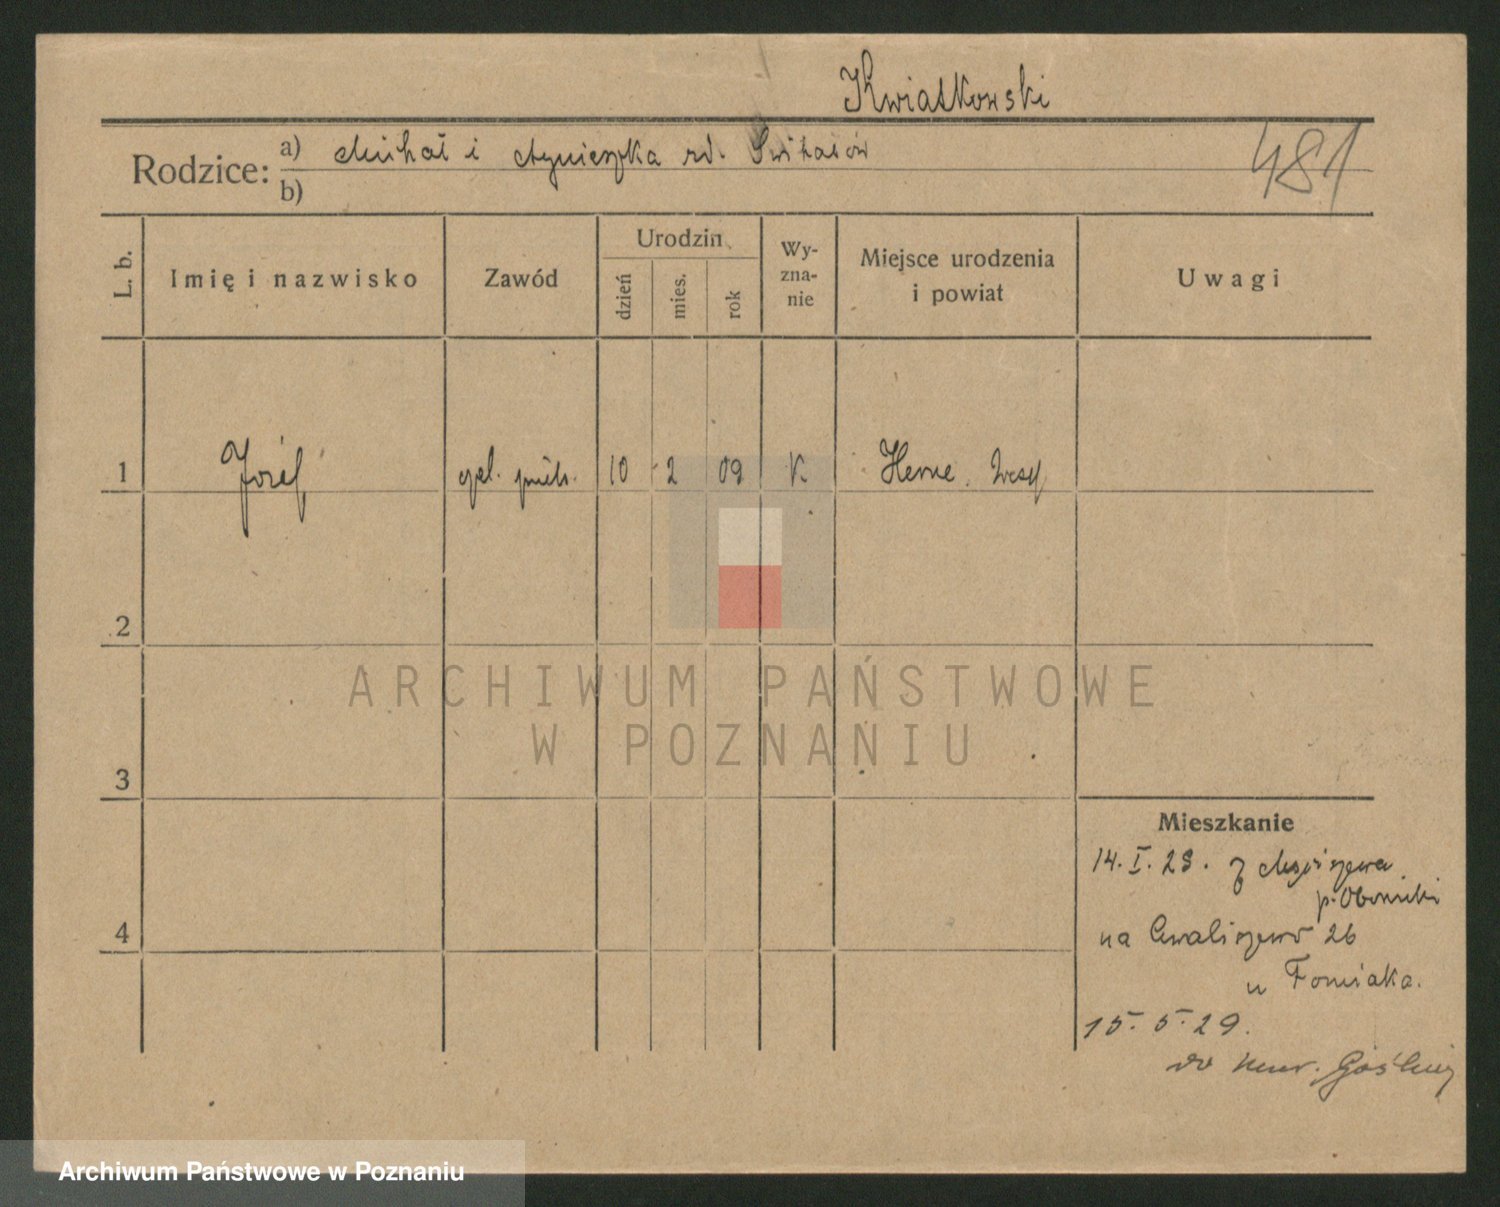 Kwiatkowski
Rodzice: a) Michał i Agnieszka zd.
481
b)
L. b.
Imię i nazwisko
Zawód
Urodzin
dzień
mies.
rok
Wy-
zna-
nie
Miejsce urodzenia
i powiat
Uwagi
1 Józef, piek. 10 2 09 K Herne. Westf
2
ARCHIWUM PAŃSTWOWE
W POZNANIU
3
Mieszkanie
14. I. 29. z
p. Oborniki
4
na Chwaliszewo 26
u Fomiaka.
15. 5. 29.
do Mur. Gośliny
Archiwum Państwowe w Poznaniu